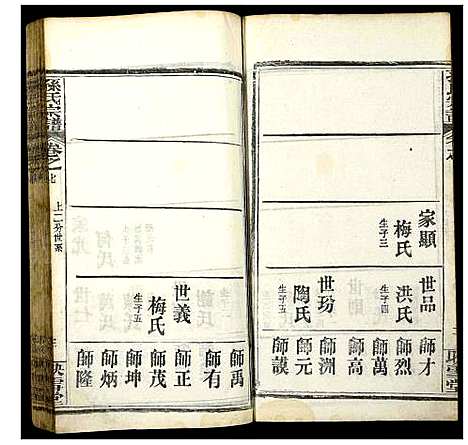 家顯
梅氏
生子三
世品
洪氏
生子四
世玢
陶氏
生子五
師才
師烈
師萬
師高
師渊
師元
師謨
孫氏宗譜
卷之
上二分世系
世義
梅氏
生子五
師禹
師有
師正
師茂
師坤
師炳
師隆
映雪堂